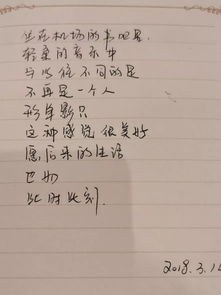 坐在机场的书吧里
轻柔的音乐中
与以往不同的是
不再是一个人
形单影只
这种感觉很美好
愿后来的生活
也如
此时此刻.
2018.3.1